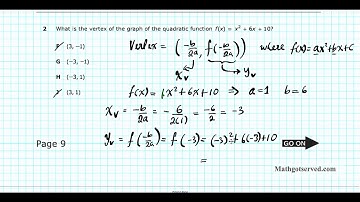 2 What is the vertex of the graph of the quadratic function f(x) = x² + 6x + 10?
F (3, −1)
G (−3, −1)
H (−3, 1)
J (3, 1)
Vertex = (-b/2a, f(-b/2a)) where f(x) = ax²+bx+c
xᵥ yᵥ
f(x) = 1x²+6x+10 ⇒ a=1 b=6
xᵥ = -b/2a = -6/2(1) = -6/2 = -3
yᵥ = f(-b/2a) = f(-3) = (-3)²+6(-3)+10
=
Page 9
GO ON
Mathgotserved.com